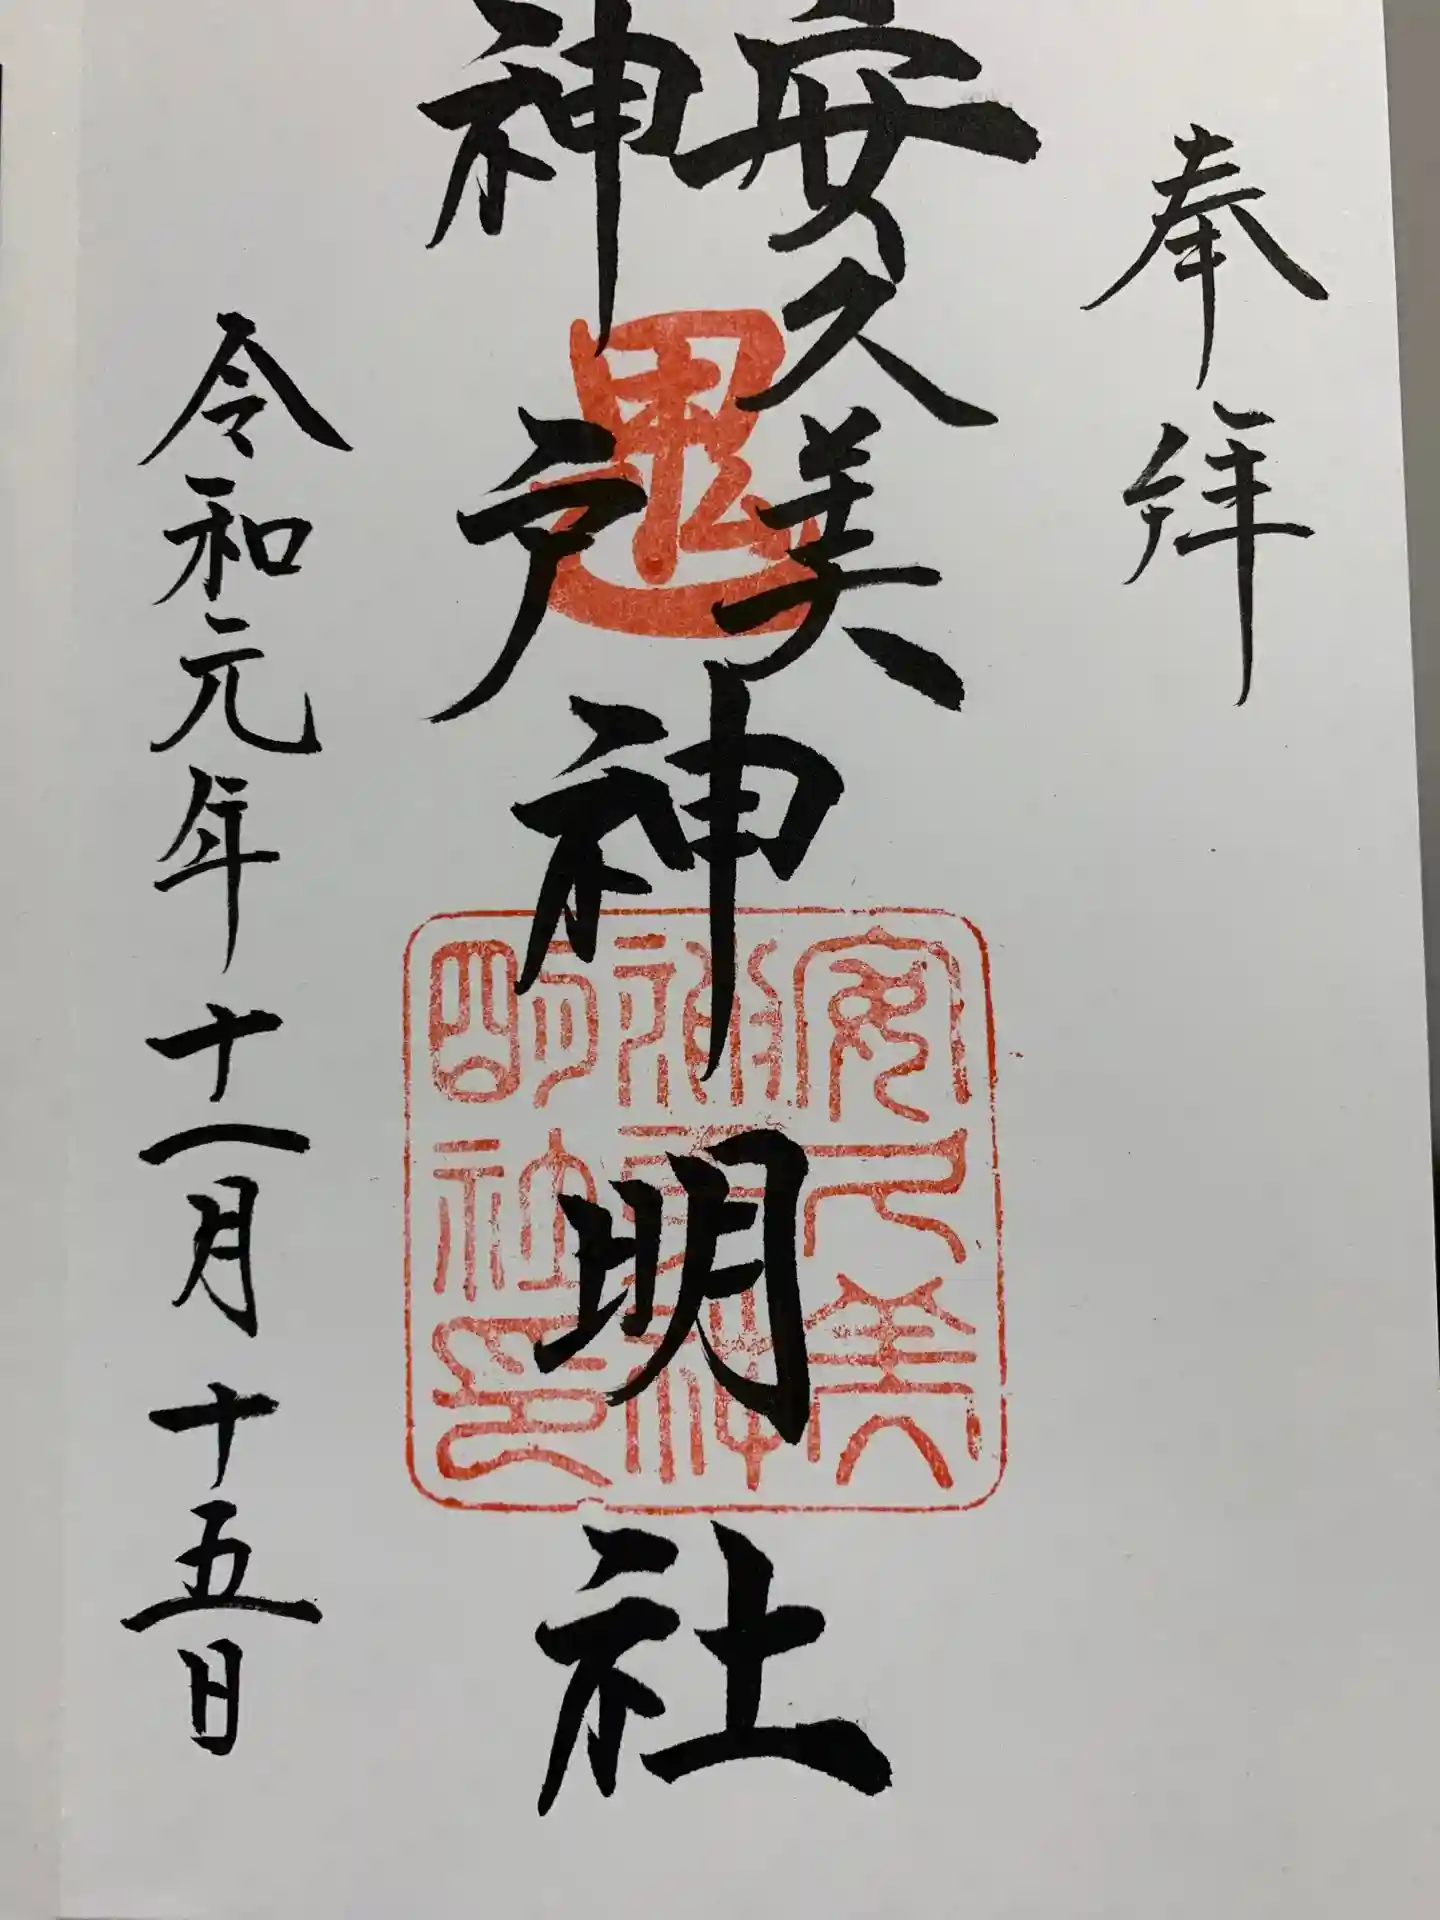 奉拝
安久美
神戸
神明社
鬼
安久美
神戸神
明社印
令和元年十一月十五日